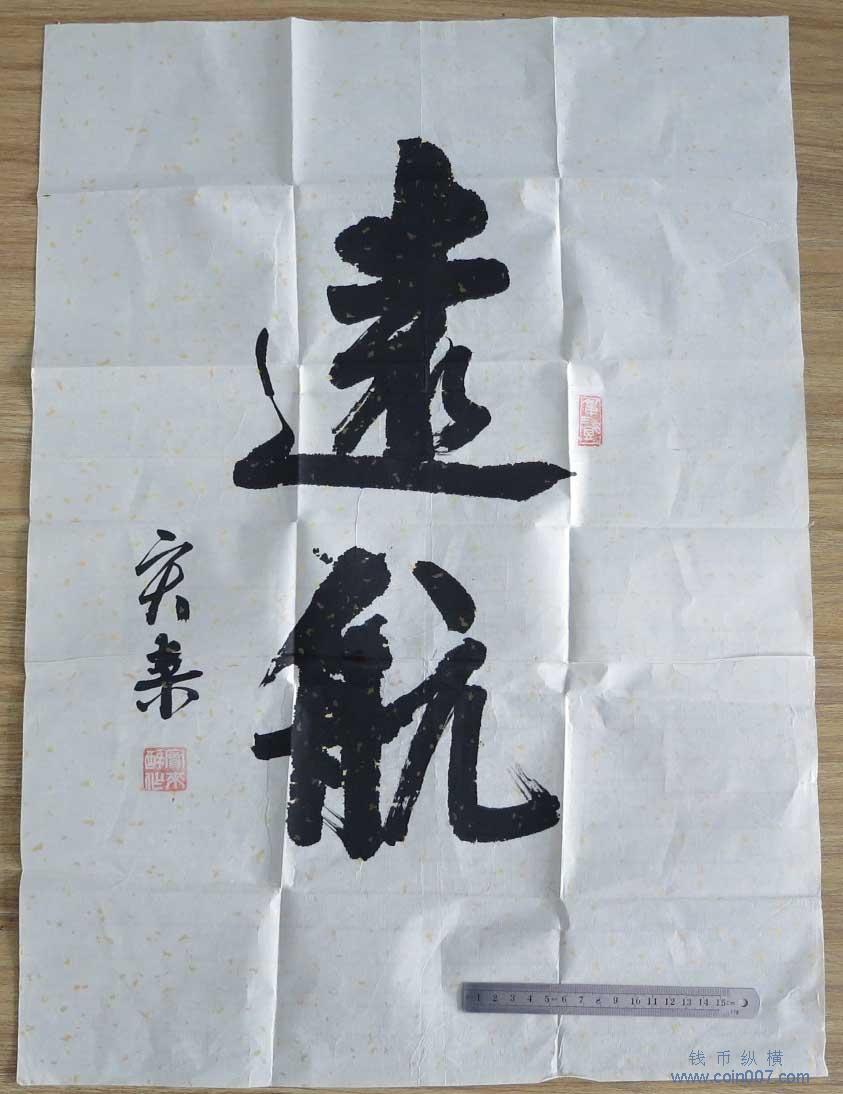 遠航
1 2 3 4 5 6 7 8 9 10 11 12 13 14 15
钱币纵横
www.coin007.com